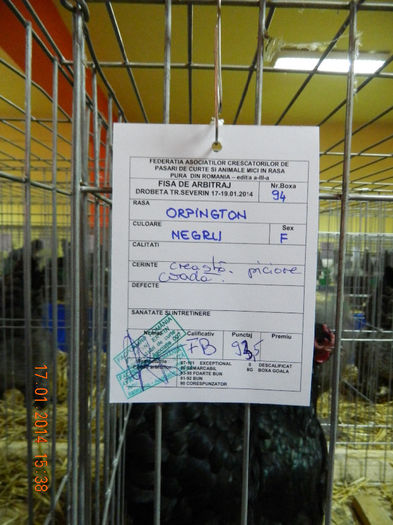 FEDERATIA ASOCIATIILOR CRESCATORILOR DE
PASARI DE CURTE SI ANIMALE MICI IN RASA
PURA DIN ROMANIA – editia a-III-a
FISA DE ARBITRAJ
DROBETA TR.SEVERIN 17-19.01.2014
Nr.Boxa
94
RASA
ORPINGTON
CULOARE
NEGRU
Sex
F
CALITATI
CERINTE creastă. picioare
coada.
DEFECTE
SANATATE SI INTRETINERE
Calificativ Punctaj Premiu
FB 93,5
97-101 EXCEPTIONAL 0 DESCALIFICAT
96 REMARCABIL BG BOXA GOALA
93-95 FOARTE BUN
91-92 BUN
90 CORESPUNZATOR
17.01.2014 15:38